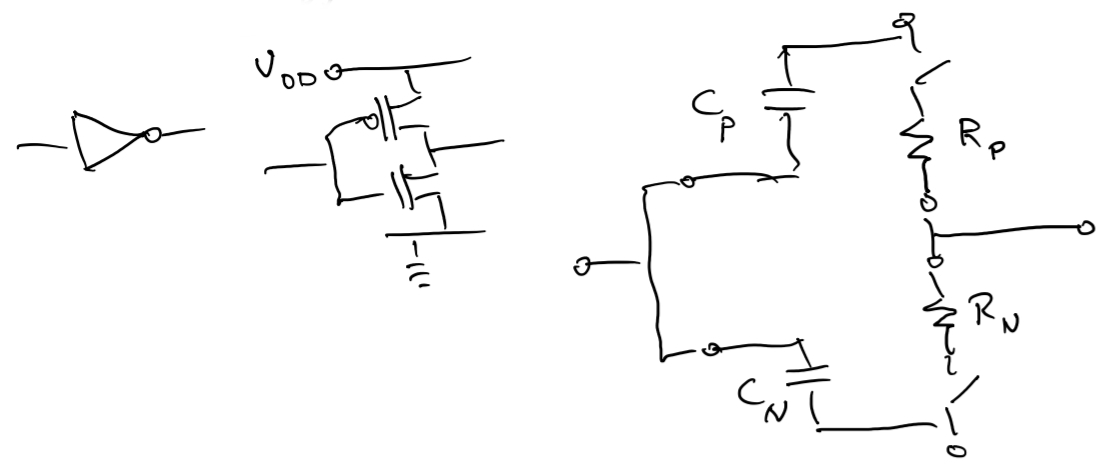 V_DD
C_P
R_P
R_N
C_N